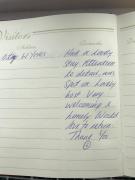 Visitors
Address
Remarks
Had a lovely
Stay. Attention
to detail was
Spot on. Lovely
host. Very
welcoming &
homely. Would
like to return.
Thank You